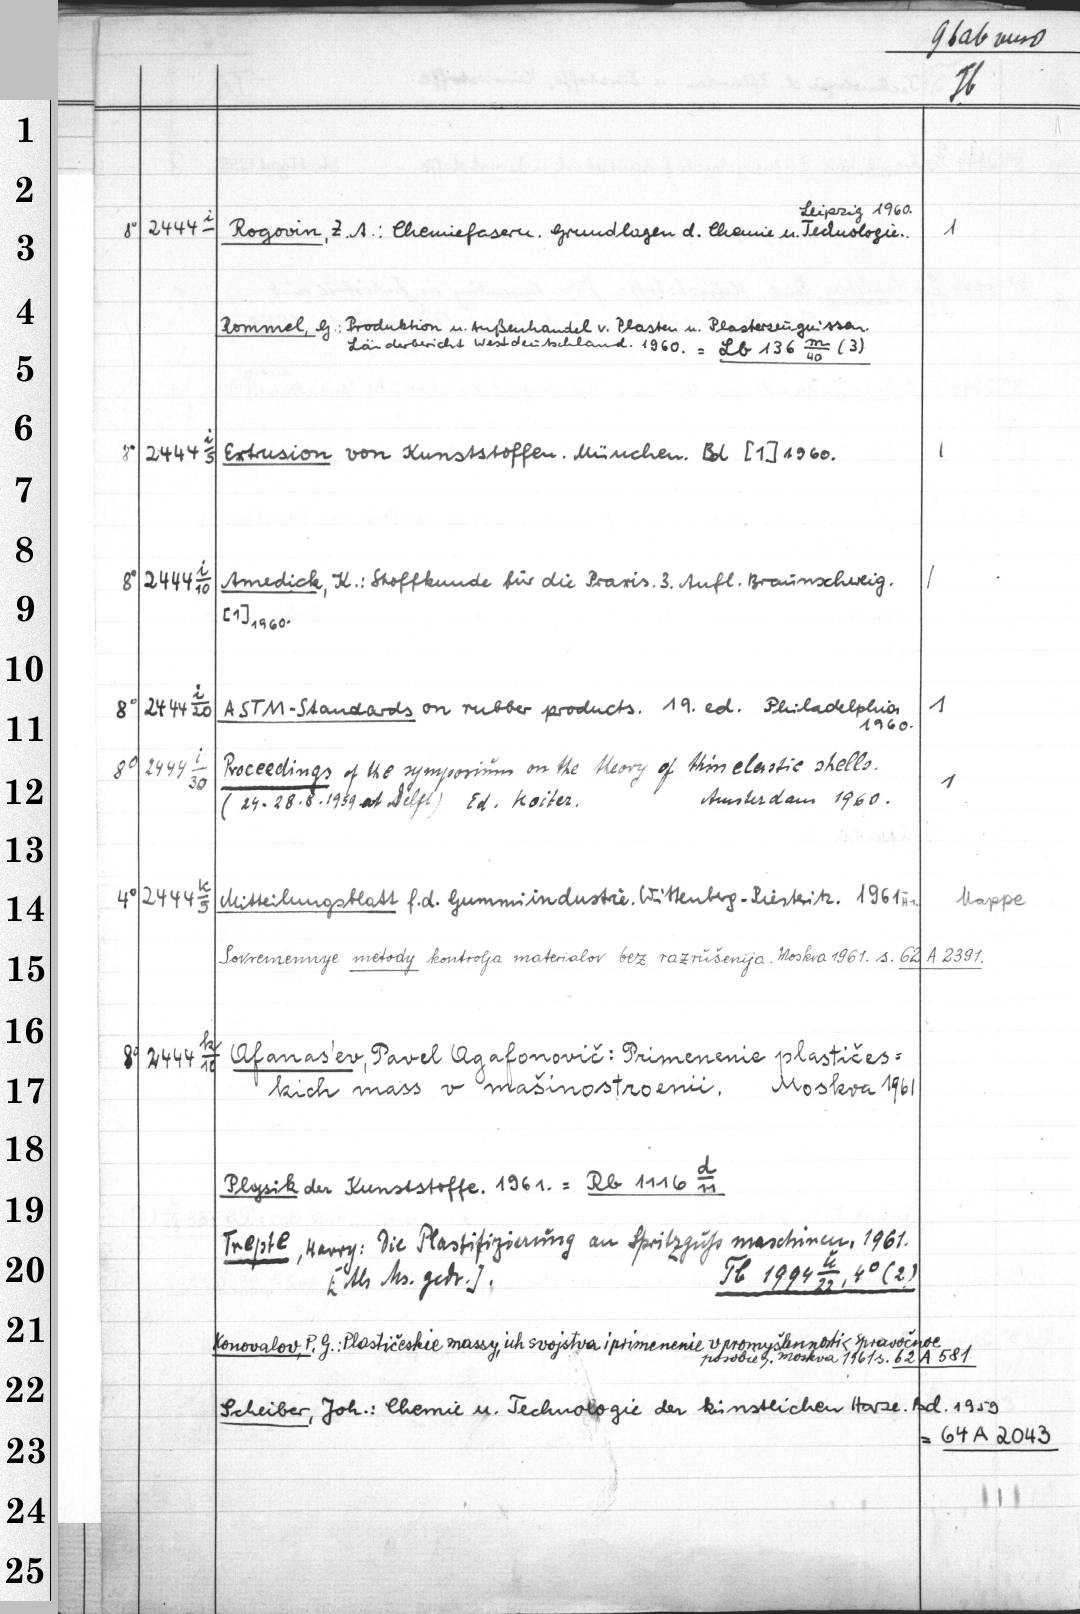 Tb
Leipzig 1960.
8° 2444 i Rogovin, Z. A.: Chemiefasern. Grundlagen d. Chemie u. Technologie. 1
Rommel, G.: Produktion u. Außenhandel v. Plasten u. Plasterzeugnissen.
Länderbericht Westdeutschland. 1960. = Lb 136 m/40 (3)
8° 2444 i/5 Extrusion von Kunststoffen. München. Bd [1] 1960. 1
8° 2444 i/10 Amedick, K.: Stoffkunde für die Praxis. 3. Aufl. Braunschweig. 1
[1] 1960.
8° 2444 i/20 ASTM-Standards on rubber products. 19. ed. Philadelphia 1
1960.
8° 2444 i/30 Proceedings of the symposium on the theory of thin elastic shells.
(24.-28.8.1959 at Delft) Ed. Koiter. Amsterdam 1960. 1
4° 2444 k/5 Mitteilungsblatt f.d. Gummiindustrie. Wittenberg-Piesteritz. 1961 Mappe
Sovremennye metody kontrolja materialov bez razrušenija. Moskva 1961. s. 62 A 2391.
8° 2444 k/10 Afanas'ev, Pavel Agafonovič: Primenenie plastičes=
kich mass v mašinostroenii. Moskva 1961
Physik der Kunststoffe. 1961. = Rb 1116 d/11
Trepte, Harry: Die Plastifizierung an Spritzgußmaschinen. 1961.
[Als Ms. gedr.]. Tb 1994 k/22, 4° (2)
Konovalov, P. G.: Plastičeskie massy, ich svojstva i primenenie v promyšlennosti. Spravočnoe
posobie. Moskva 1961 s. 62 A 581
Scheiber, Joh.: Chemie u. Technologie der künstlichen Harze. Bd. 1959
= 64 A 2043
1
2
3
4
5
6
7
8
9
10
11
12
13
14
15
16
17
18
19
20
21
22
23
24
25